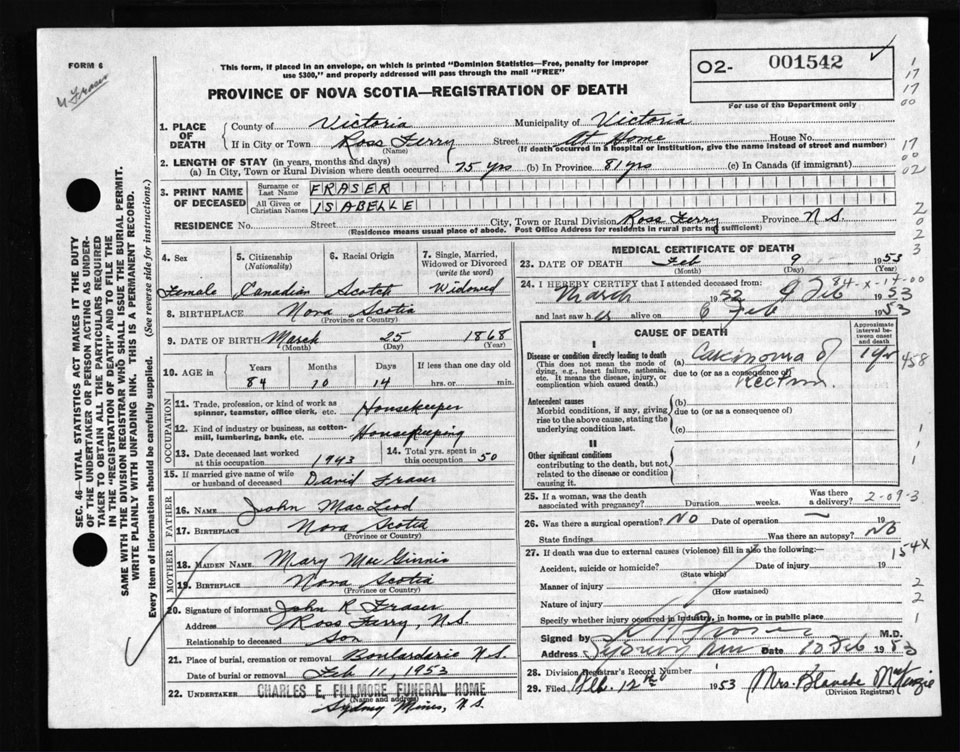 FORM 6
This form, if placed in an envelope, on which is printed "Dominion Statistics—Free, penalty for improper
use $300," and properly addressed will pass through the mail "FREE"
O2- 001542
For use of the Department only
PROVINCE OF NOVA SCOTIA—REGISTRATION OF DEATH
Fraser
1. PLACE OF DEATH
County of Victoria Municipality of Victoria
If in City or Town Ross Ferry Street At Home House No.
(Name) (If death occurred in a hospital or institution, give the name instead of street and number)
2. LENGTH OF STAY (in years, months and days)
(a) In City, Town or Rural Division where death occurred 75 yrs (b) In Province 81 yrs (c) In Canada (if immigrant)
3. PRINT NAME OF DECEASED
Surname or Last Name FRASER
All Given or Christian Names ISABELLE
RESIDENCE No. Street City, Town or Rural Division Ross Ferry Province N.S.
(Residence means usual place of abode. Post Office Address for residents in rural parts not sufficient)
4. Sex
Female
5. Citizenship
(Nationality)
Canadian
6. Racial Origin
Scotch
7. Single, Married,
Widowed or Divorced
(write the word)
Widowed
8. BIRTHPLACE Nova Scotia
(Province or Country)
9. DATE OF BIRTH March 25 1868
(Month) (Day) (Year)
10. AGE in
Years Months Days If less than one day old
84 10 14 hrs. or min.
OCCUPATION
11. Trade, profession, or kind of work as
spinner, teamster, office clerk, etc. Housekeeper
12. Kind of industry or business, as cotten-
mill, lumbering, bank, etc. Housekeeping
13. Date deceased last worked
at this occupation 1943
14. Total yrs. spent in
this occupation 50
15. If married give name of wife
or husband of deceased David Fraser
FATHER
16. NAME John Mac Leod
17. BIRTHPLACE Nova Scotia
(Province or Country)
MOTHER
18. MAIDEN NAME Mary Mac Ginnis
19. BIRTHPLACE Nova Scotia
(Province or Country)
20. Signature of informant John R Fraser
Address Ross Ferry, N.S.
Relationship to deceased Son
21. Place of burial, cremation or removal Boulardarie N.S.
Date of burial or removal Feb 11, 1953
22. UNDERTAKER CHARLES E. FILLMORE FUNERAL HOME
(Name and address)
Sydney Mines, N.S.
MEDICAL CERTIFICATE OF DEATH
23. DATE OF DEATH Feb 9 1953
(Month) (Day) (Year)
24. I HEREBY CERTIFY that I attended deceased from:
March 1952 9 Feb 1953
and last saw her alive on 6 Feb 1953
CAUSE OF DEATH
Approximate
interval be-
tween onset
and death
I
Disease or condition directly leading to death
(This does not mean the mode of
dying, e.g., heart failure, asthenia,
etc. It means the disease, injury, or
complication which caused death.)
(a) Carcinoma of 1 yr
due to (or as a consequence of)
Rectum
Antecedent causes
Morbid conditions, if any, giving
rise to the above cause, stating the
underlying condition last.
(b)
due to (or as a consequence of)
(c)
II
Other significant conditions
contributing to the death, but not
related to the disease or condition
causing it.
25. If a woman, was the death
associated with pregnancy? Duration weeks. Was there
a delivery?
26. Was there a surgical operation? NO Date of operation — 19
State findings Was there an autopsy? NO
27. If death was due to external causes (violence) fill in also the following:—
Accident, suicide or homicide? Date of injury 19
(State which)
Manner of injury
(How sustained)
Nature of injury
Specify whether injury occurred in industry, in home, or in public place
Signed by M.D.
Address Sydney Mines Date 10 Feb 1953
28. Division Registrar's Record Number 1
29. Filed Feb. 12th 1953 Mrs. Blanche MacKenzie
(Division Registrar)
1
17
17
00
17
00
02
2
0
2
3
84-x-14-00
458
1
1
2-09-3
154X
2
2
1
SEC. 46—VITAL STATISTICS ACT MAKES IT THE DUTY
OF THE UNDERTAKER OR PERSON ACTING AS UNDER-
TAKER TO OBTAIN ALL THE PARTICULARS REQUIRED
IN THE "REGISTRATION OF DEATH" AND TO FILE THE
SAME WITH THE DIVISION REGISTRAR WHO SHALL ISSUE THE BURIAL PERMIT.
WRITE PLAINLY WITH UNFADING INK. THIS IS A PERMANENT RECORD.
Every item of information should be carefully supplied. (See reverse side for instructions.)